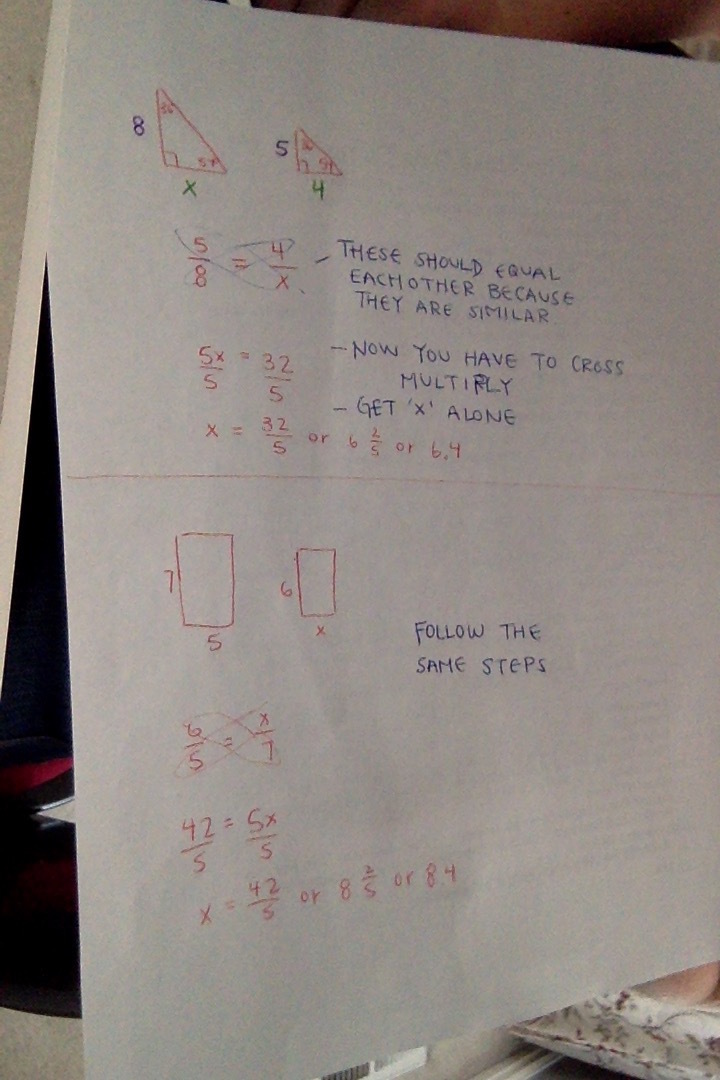 8
36
54
x
5
36
54
4
5/8 = 4/x - THESE SHOULD EQUAL
EACHOTHER BECAUSE
THEY ARE SIMILAR
5x/5 = 32/5 - NOW YOU HAVE TO CROSS
MULTIPLY
- GET 'X' ALONE
x = 32/5 or 6 2/5 or 6.4
7
5
6
x
FOLLOW THE
SAME STEPS
6/5 = x/7
42/5 = 5x/5
x = 42/5 or 8 2/5 or 8.4